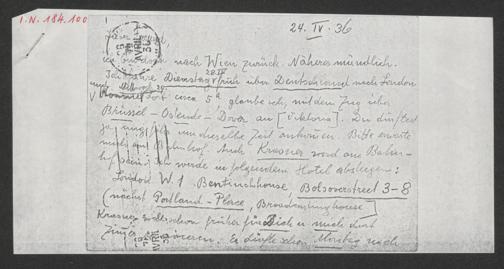 I.N. 184.100
24. IV. 36
nach Wien zurück. Näheres mündlich.
Dienstag früh über Deutschland nach London
und
dort circa 5h, glaube ich, mit dem Zug über
Brüssel - Ostende - Dover an (Viktoria). Du dürftest
ja um dieselbe Zeit ankommen. Bitte erwarte
mich am Bahnhof. Auch Krasner wird am Bahn-
hof sein. Ich werde in folgendem Hotel absteigen:
London W. 1 Bentinckhouse, Bolsoverstreet 3-8
(nächst Portland-Place, Broadcastinghouse)
Krasner soll schon früher für Dich u. mich dort
Zimmer Es dürfte schon Montag nach